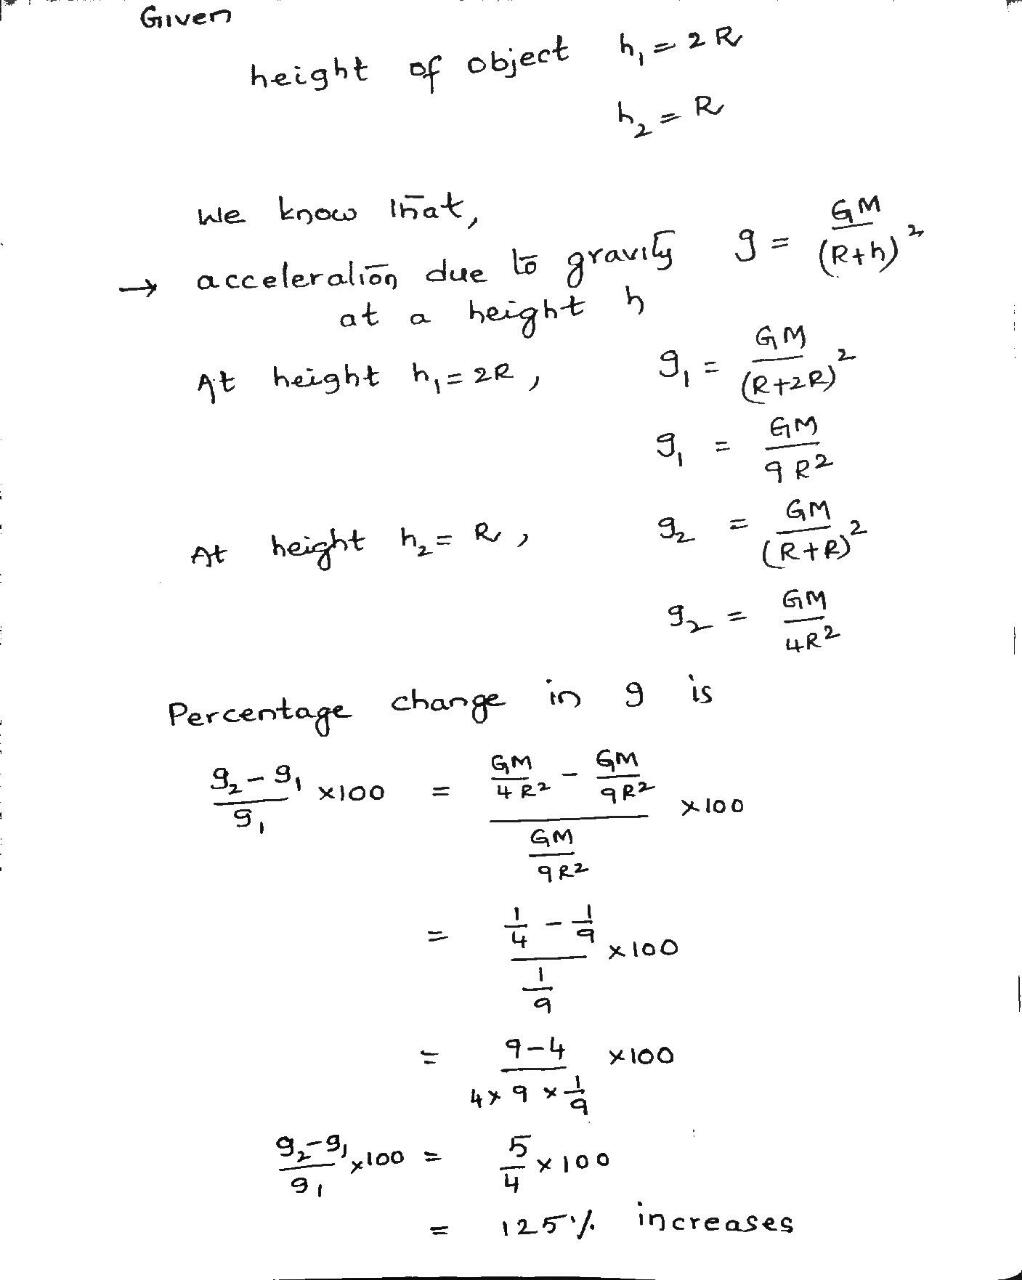 Given
height of object h₁ = 2R
h₂ = R
We know that,
→ acceleration due to gravity g = GM/(R+h)²
at a height h
At height h₁ = 2R, g₁ = GM/(R+2R)²
g₁ = GM/9R²
At height h₂ = R, g₂ = GM/(R+R)²
g₂ = GM/4R²
Percentage change in g is
(g₂-g₁)/g₁ ×100 = (GM/4R² - GM/9R²)/(GM/9R²) ×100
= (1/4 - 1/9)/(1/9) ×100
= (9-4)/(4×9×1/9) ×100
(g₂-g₁)/g₁ ×100 = 5/4 ×100
= 125% increases